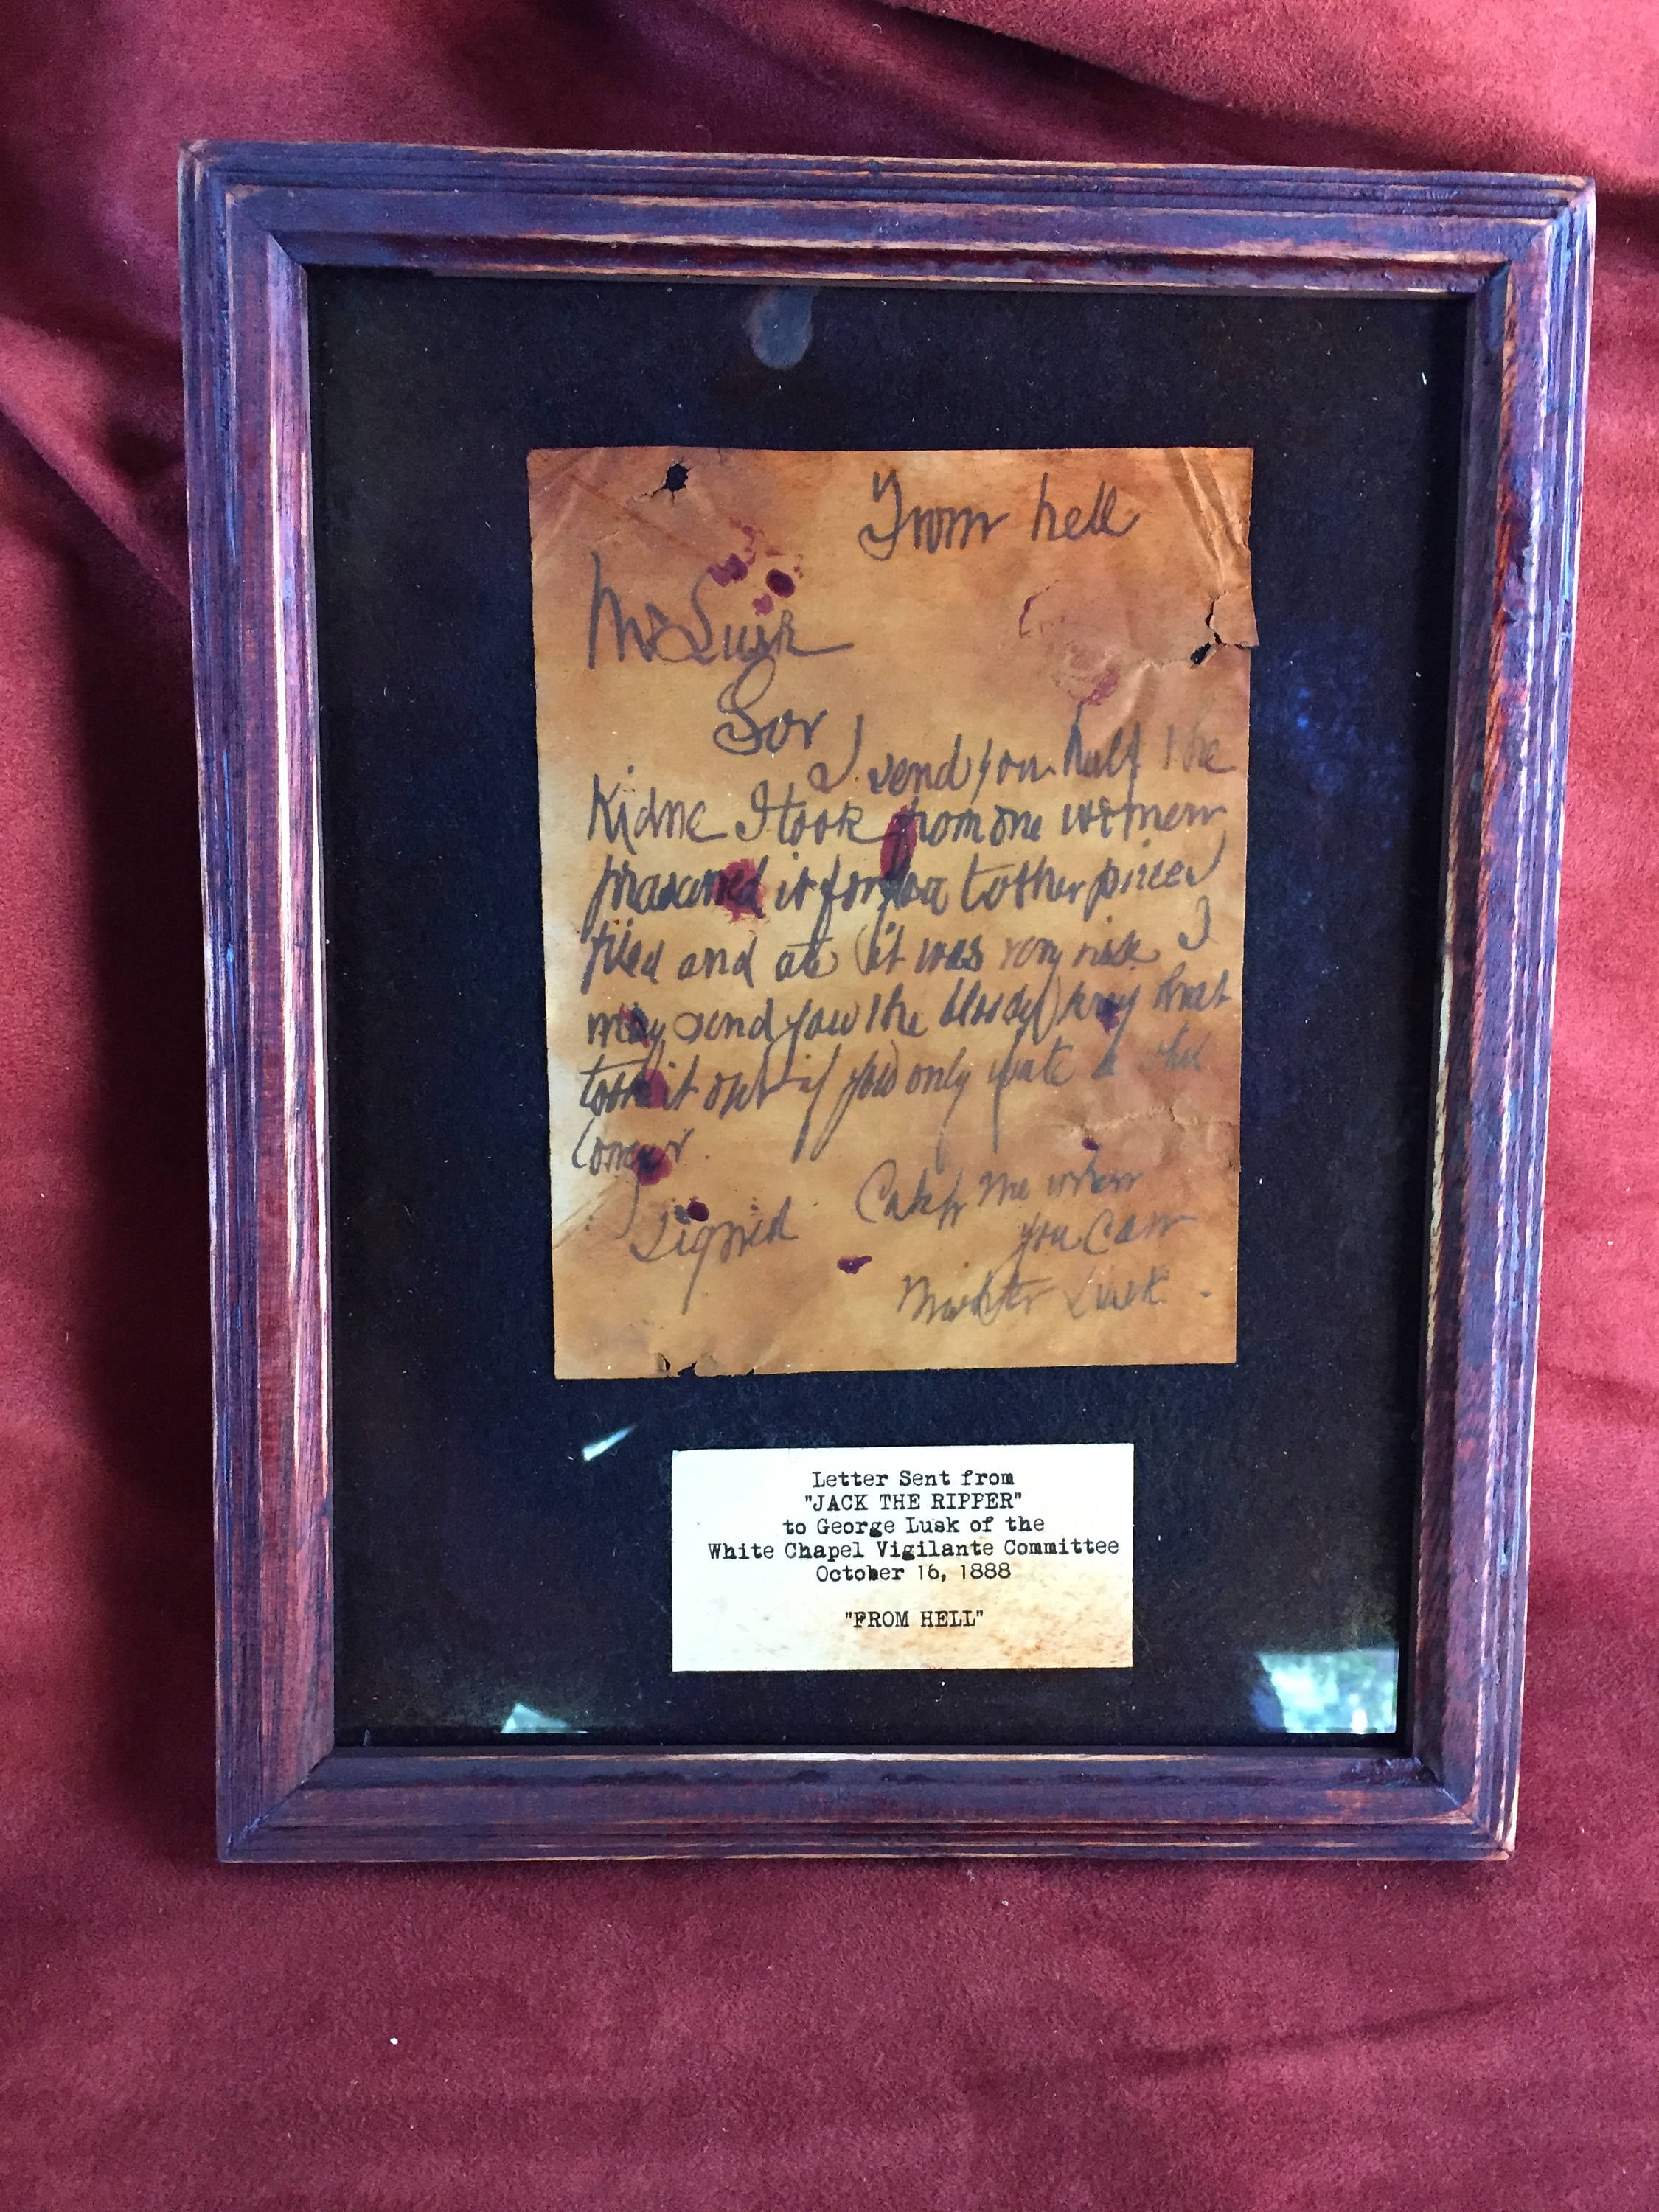 From hell
Mr Lusk
Sor
I send you half the
Kidne I took from one women
prasarved it for you tother piece I
fried and ate it was very nise I
may send you the bloody knif that
took it out if you only wate a whil
longer.
Signed Catch me when
you Can
Mishter Lusk -
Letter Sent from
"JACK THE RIPPER"
to George Lusk of the
White Chapel Vigilante Committee
October 16, 1888
"FROM HELL"